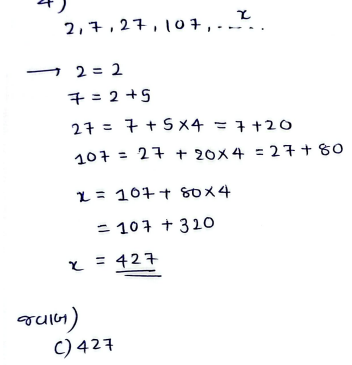 4)
2, 7, 27, 107, ..x...
→ 2 = 2
7 = 2 + 5
27 = 7 + 5 × 4 = 7 + 20
107 = 27 + 20 × 4 = 27 + 80
x = 107 + 80 × 4
= 107 + 320
x = 427
જવાબ)
C) 427